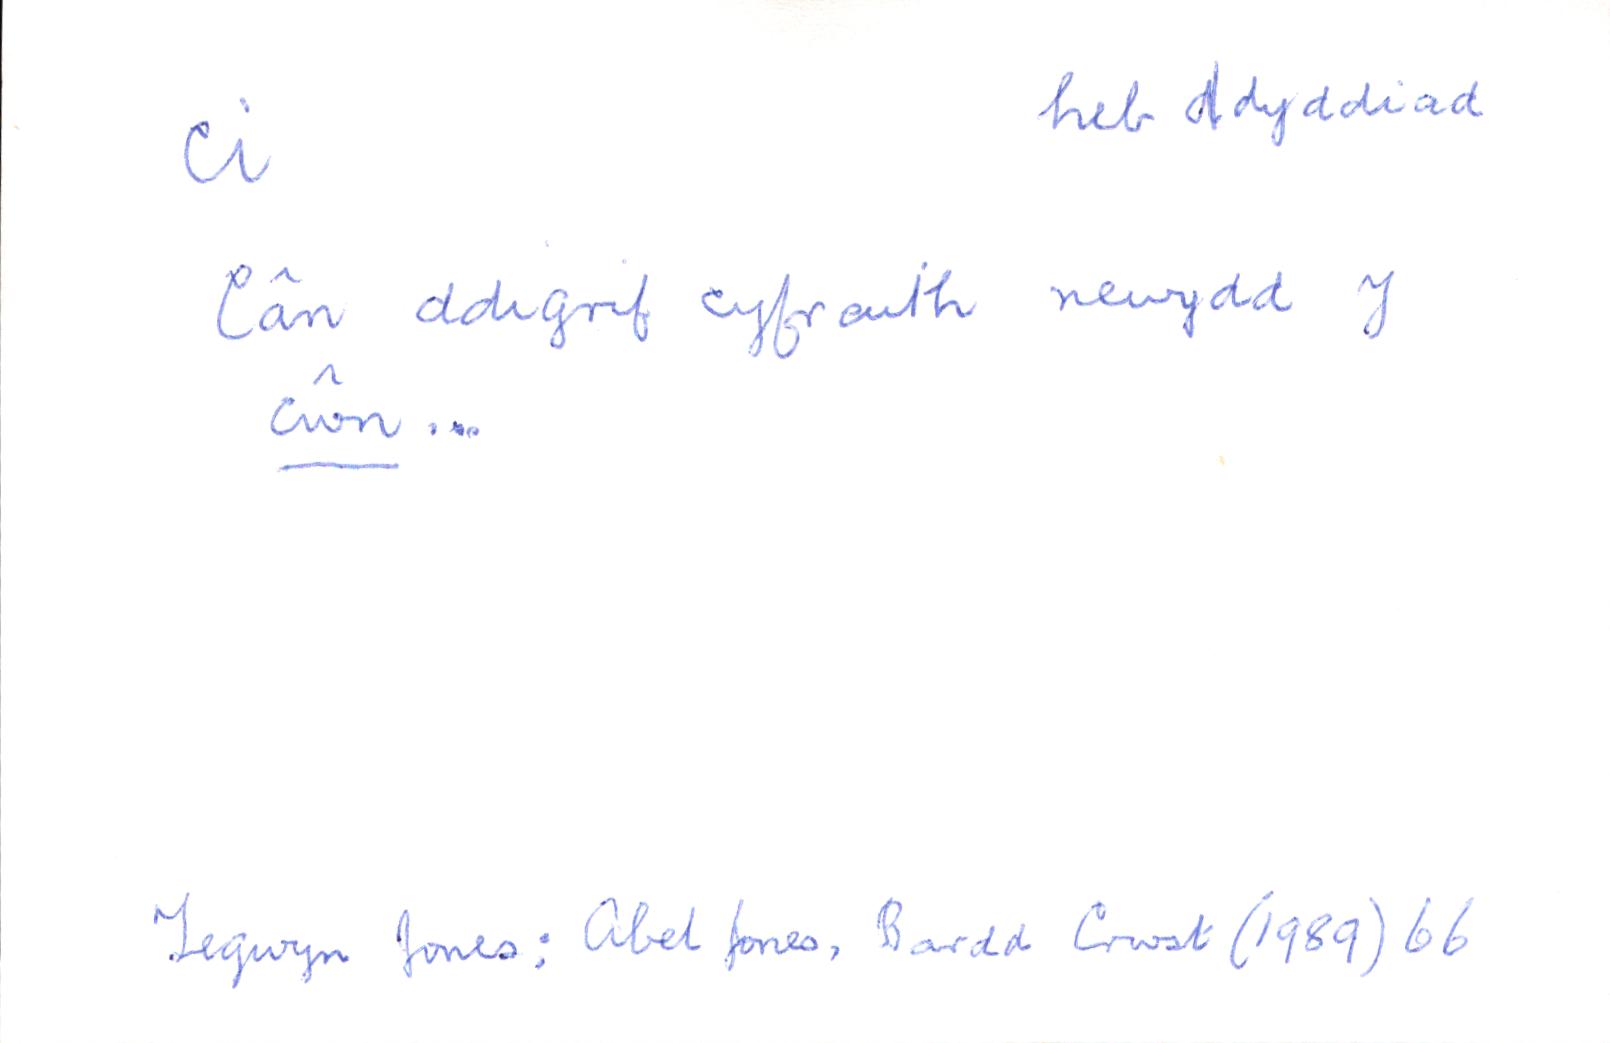 ci
heb ddyddiad
Cân ddigrif cyfraith newydd y
cŵn ...
Tegwyn Jones: Abel Jones, Bardd Crwst (1989) 66